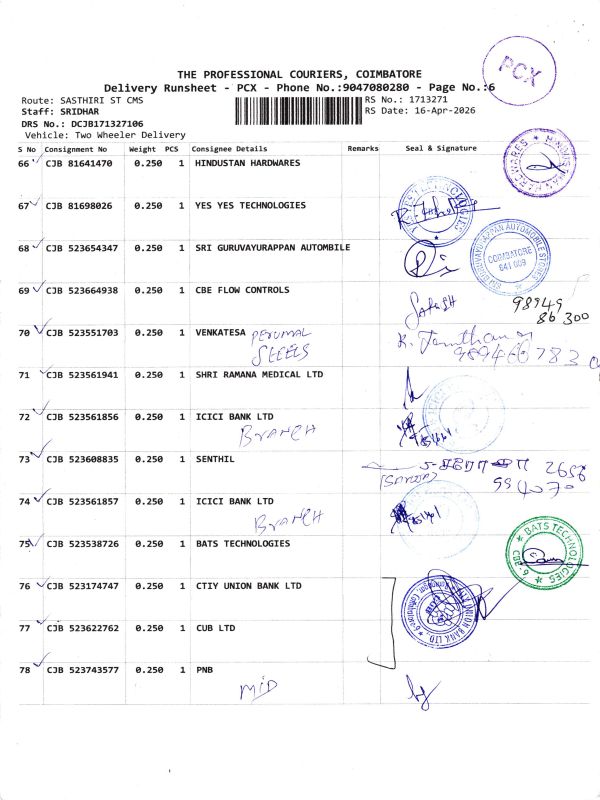 PCX
THE PROFESSIONAL COURIERS, COIMBATORE
Delivery Runsheet - PCX - Phone No.:9047080280 - Page No.:6
Route: SASTHIRI ST CMS
RS No.: 1713271
Staff: SRIDHAR
RS Date: 16-Apr-2026
DRS No.: DCJB171327106
Vehicle: Two Wheeler Delivery
S No Consignment No Weight PCS Consignee Details Remarks Seal & Signature
66 CJB 81641470 0.250 1 HINDUSTAN HARDWARES
67 CJB 81698026 0.250 1 YES YES TECHNOLOGIES
68 CJB 523654347 0.250 1 SRI GURUVAYURAPPAN AUTOMBILE
SRI GURUVAYURAPPAN AUTOMOBILE STORES
COIMBATORE
641 009
69 CJB 523664938 0.250 1 CBE FLOW CONTROLS
98949
86 300
70 CJB 523551703 0.250 1 VENKATESA PERUMAL
STEELS
71 CJB 523561941 0.250 1 SHRI RAMANA MEDICAL LTD
72 CJB 523561856 0.250 1 ICICI BANK LTD
BRANCH
73 CJB 523608835 0.250 1 SENTHIL
74 CJB 523561857 0.250 1 ICICI BANK LTD
BRANCH
75 CJB 523538726 0.250 1 BATS TECHNOLOGIES
BATS TECHNOLOGIES
CBE-6
76 CJB 523174747 0.250 1 CTIY UNION BANK LTD
77 CJB 523622762 0.250 1 CUB LTD
78 CJB 523743577 0.250 1 PNB
MID